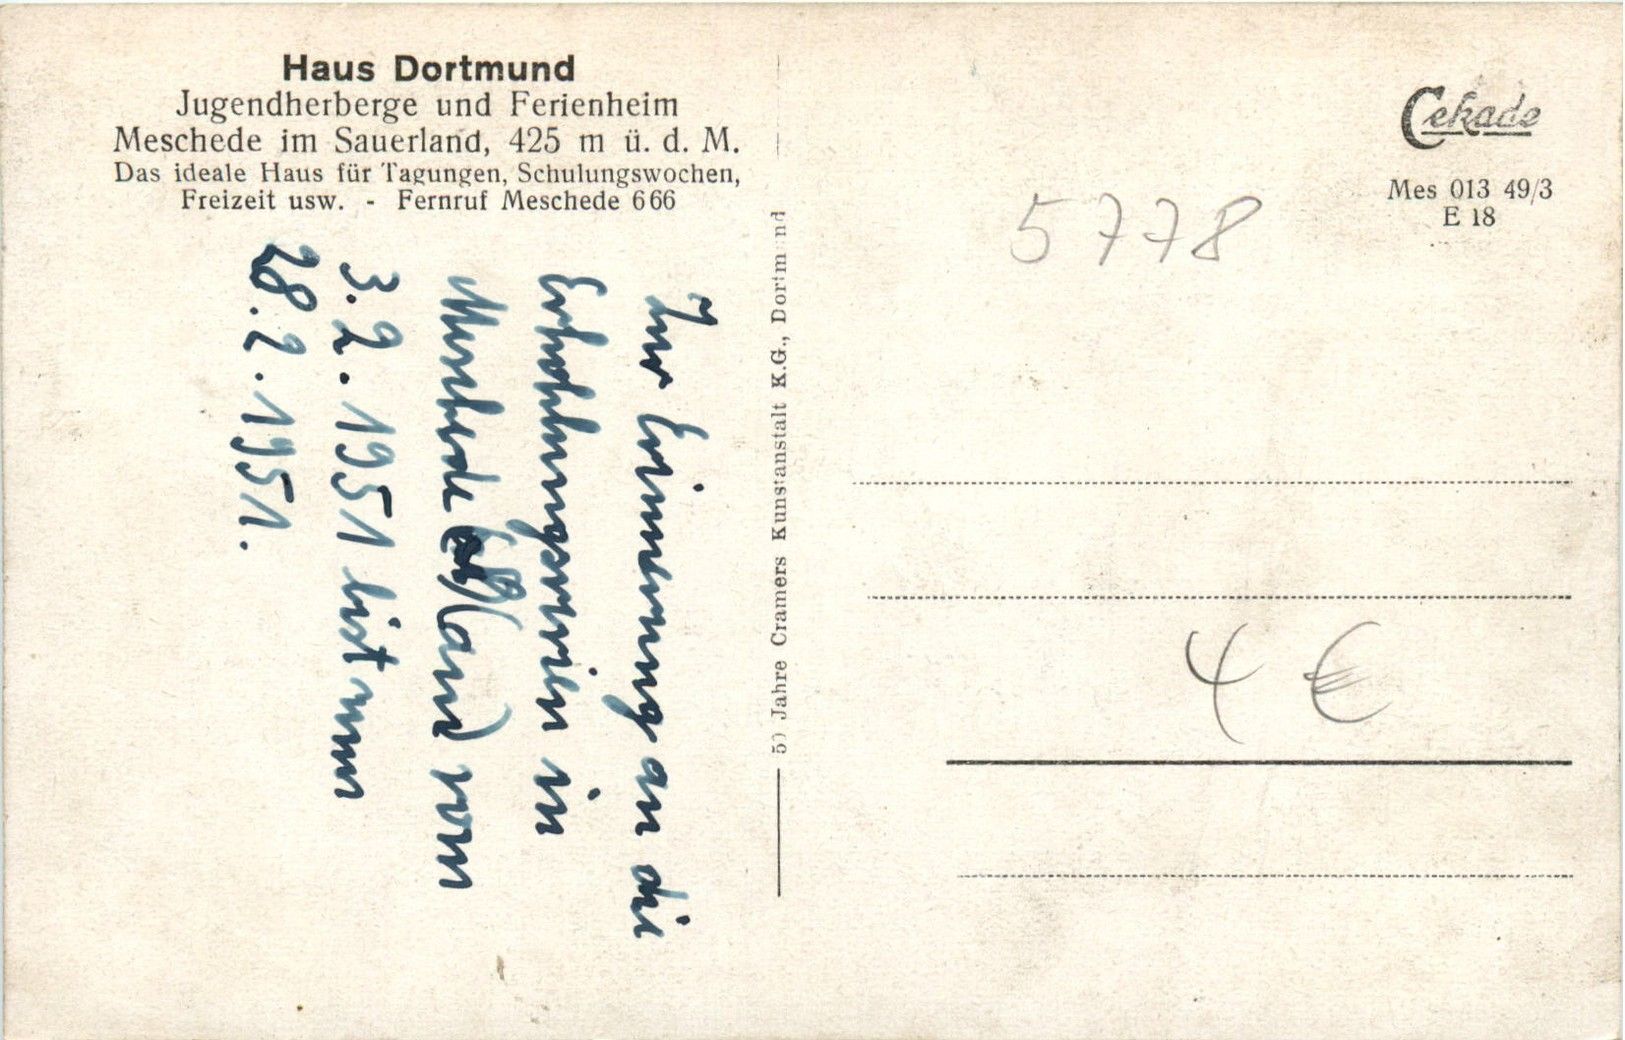 Haus Dortmund
Jugendherberge und Ferienheim
Meschede im Sauerland, 425 m ü. d. M.
Das ideale Haus für Tagungen, Schulungswochen,
Freizeit usw. - Fernruf Meschede 666
Zur Erinnerung an die
Erholungszeit in
Meschede vom
3.2.1951 bis zum
28.2.1951.
50 Jahre Cramers Kunstanstalt K.G., Dortmund
Cekade
Mes 013 49/3
E 18
5778
4 €